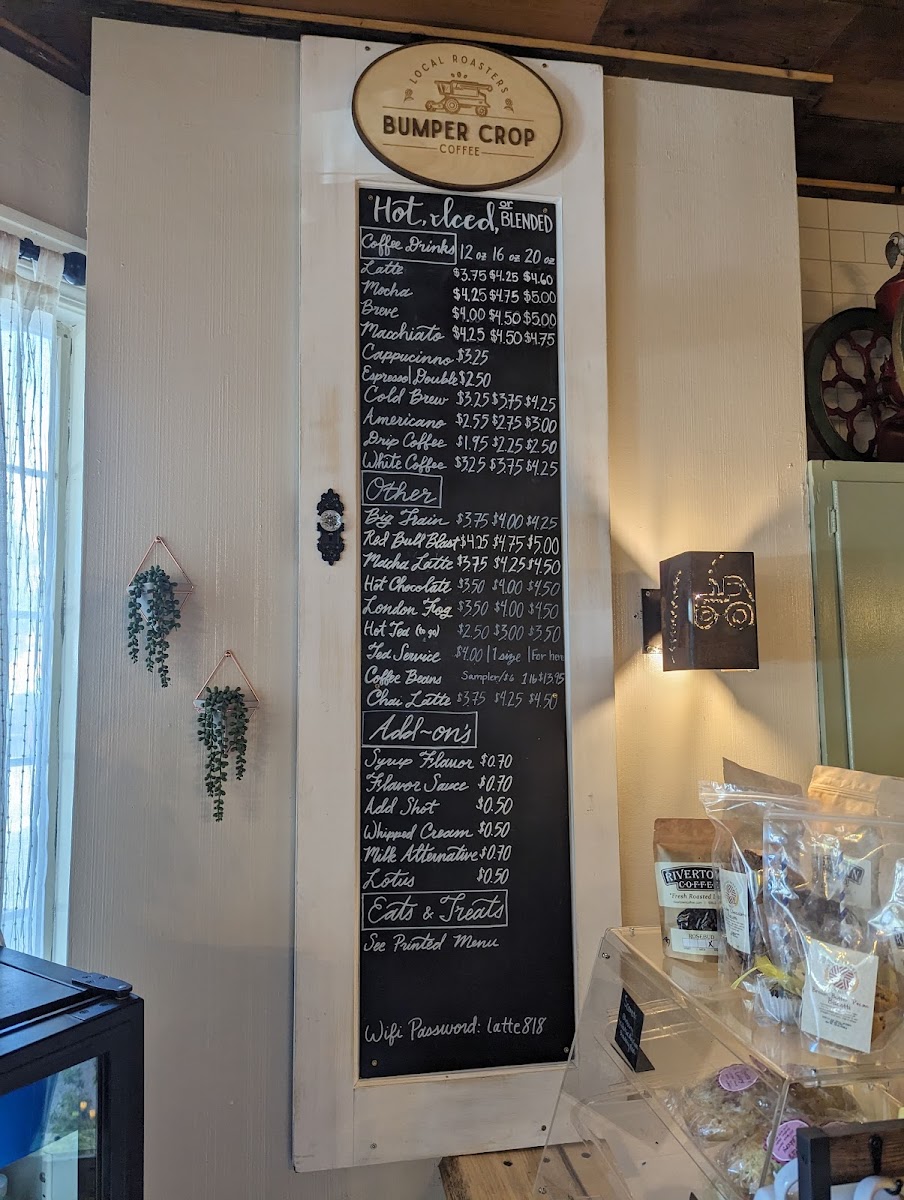 LOCAL ROASTERS
BUMPER CROP
COFFEE
Hot, Iced, or BLENDED
Coffee Drinks 12 oz 16 oz 20 oz
Latte $3.75 $4.25 $4.60
Mocha $4.25 $4.75 $5.00
Breve $4.00 $4.50 $5.00
Macchiato $4.25 $4.50 $4.75
Cappucinno $3.25
Espresso|Double $2.50
Cold Brew $3.25 $3.75 $4.25
Americano $2.55 $2.75 $3.00
Drip Coffee $1.95 $2.25 $2.50
White Coffee $3.25 $3.75 $4.25
Other
Big Train $3.75 $4.00 $4.25
Red Bull Blast $4.25 $4.75 $5.00
Matcha Latte $3.75 $4.25 $4.50
Hot Chocolate $3.50 $4.00 $4.50
London Fog $3.50 $4.00 $4.50
Hot Tea (to go) $2.50 $3.00 $3.50
Tea Service $4.00 | 1 size | For here
Coffee Beans Sampler/$6 1 lb $13.95
Chai Latte $3.75 $4.25 $4.50
Add~on's
Syrup Flavor $0.70
Flavor Sauce $0.70
Add Shot $0.50
Whipped Cream $0.50
Milk Alternative $0.70
Lotus $0.50
Eats & Treats
See Printed Menu
Wifi Password: latte818
RIVERTO
COFFEE
"Fresh Roasted
ROSEBUD
X